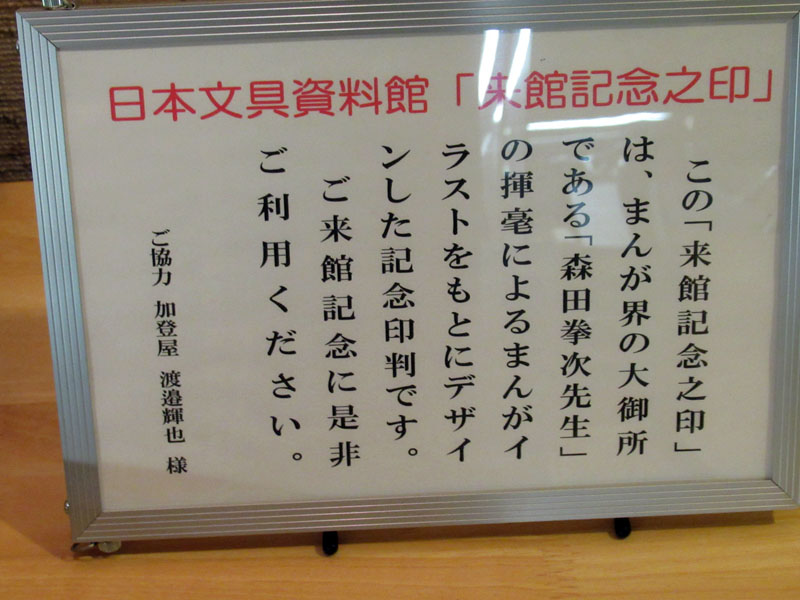 日本文具資料館「来館記念之印」
この「来館記念之印」
は、まんが界の大御所
である「森田拳次先生」
の揮毫によるまんがイ
ラストをもとにデザイ
ンした記念印判です。
ご来館記念に是非
ご利用ください。
ご協力 加登屋 渡邉輝也 様